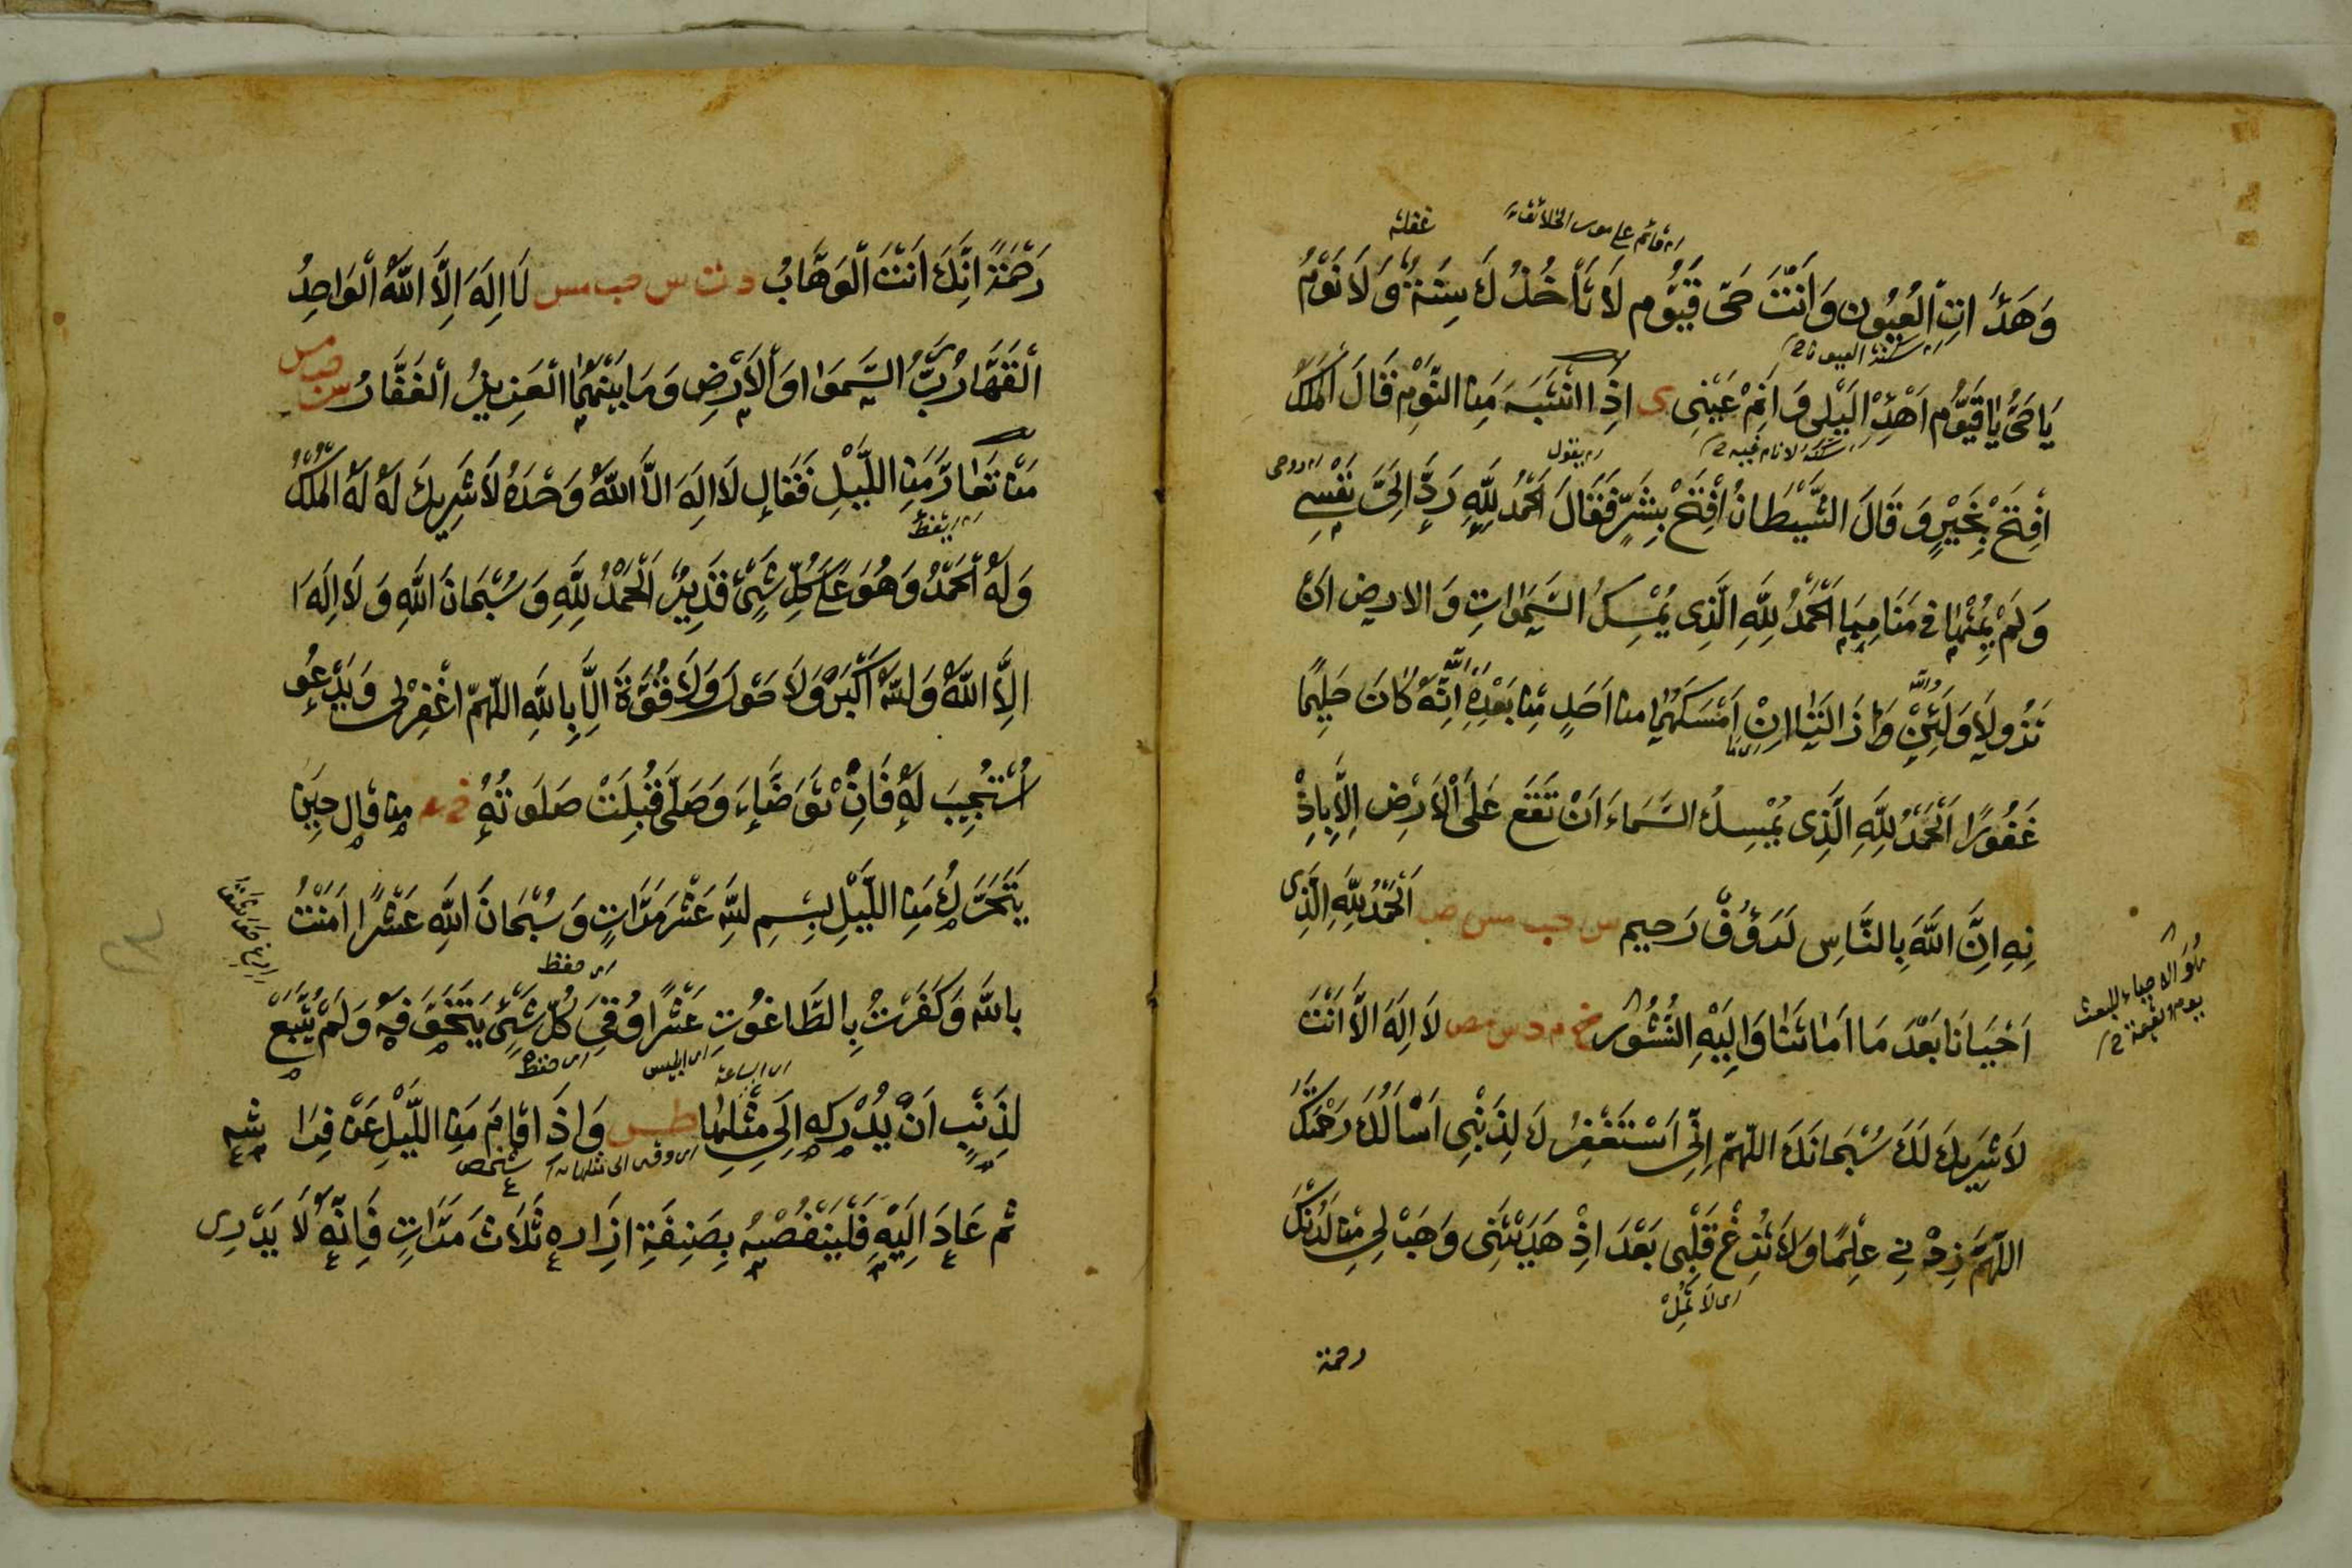 اى قائم على موت الخلائق
غفلة
وَهَدَأَتِ الْعُيُونِ وَاَنْتَ حَىّ قَيُّوم لَا تَاْخُذُكَ سِنَةٌ وَلَا نَوْمٌ
يَا حَىُّ يَا قَيُّوم اَهْدِئْ لَيْلِى وَاَنِمْ عَيْنِى ى اِذَا انْتَبَهَ مَنِ النَّوْمِ قَالَ الْمَلَكُ
اى يقول
اى روحى
اِفْتَحْ بِخَيْرٍ وَقَالَ الشَّيْطَانُ اُفْتَحْ بِشَرٍّ فَقَالَ اَلْحَمْدُ لِلّٰهِ رَدَّ اِلَىَّ نَفْسِے
وَلَمْ يُمِتْهَا فِى مَنَامِهَا اَلْحَمْدُ لِلّٰهِ الَّذِى يُمْسِكُ السَّمٰوَاتِ وَالارِض اَنْ
والله
اى الله
تَزُولَا وَلَئِنْ زَالَتَا اِنْ اَمْسَكَهُمَا من اَحَدٍ مِنْ بَعْدِهٖ اِنَّهٗ كَانَ حَلِيمًا
اى ما
غَفُورًا اَلْحَمْدُ لِلّٰهِ الَّذِى يُمْسِكُ السَّمَاءَ اَنْ تَقَعَ عَلَى الْاَرْضِ اِلَّا بِاِذْ
نِهِ اِنَّ اللّٰهَ بِالنَّاسِ لَرَؤُفٌ رَحِيم س حب مس ص اَلْحَمْدُ لِلّٰهِ الَّذِى
اَحْيَانَا بَعْدَ مَا اَمَاتَنَا وَاِلَيْهِ النُّشُوْر خ م د س مص لَا اِلَهَ اِلَّا اَنْتَ
هُوَ الاحياء للبعث
يوم القيمة
لَا شَرِيكَ لَكَ سُبْحَانَكَ اللّٰهُمّ اِنِّى اَسْتَغْفِرُكَ لِذَنْبِى اَسْاَلُكَ رَحْمَتَكَ
اللّٰهُمَّ زِدْنِى عِلْمًا وَلَا تُزِغْ قَلْبِى بَعْدَ اِذْ هَدَيْتَنِى وَهَبْ لِى مِنْ لَدُنْكَ
اى لَا تُمِلْ
رحمة
رَحْمَةً اِنَّكَ اَنْتَ الْوَهَّابُ د ت س حب مس لَا اِلَهَ اِلَّا اللّٰهُ الْوَاحِدُ
الْقَهَّارُ رَبُّ السَّمٰوَات وَالْاَرْضِ وَمَا بَيْنَهُمَا الْعَزِيزُ الْغَفَّارُ س حب مس
مَنْ تَعَارَّ مَنِ اللَّيْلِ فَقَالِ لَا اِلَهَ اِلَّا اللّٰهُ وَحْدَهُ لَا شَرِيكَ لَهُ لَهُ الْمُلْكُ
وَلَهُ الْحَمْدُ وَهُوَ عَلَى كُلِّ شَىْءٍ قَدِيرٌ اَلْحَمْدُ لِلّٰهِ وَسُبْحَانَ اللّٰهِ وَلَا اِلَهَ ا
اِلَّا اللّٰهُ وَاللّٰهُ اَكْبَرُ وَلَا حَوْلَ وَلَا قُوَّةَ اِلَّا بِاللّٰهِ اللّٰهُمّ اغْفِرْلِى وَيَدْعُو
اُسْتُجِيبَ لَهُ فَاِنْ تَوَضَّاءَ وَصَلَّى قُبِلَتْ صَلَوتُهُ خ عه من قال حِينَ
يَتَحَرَّكُ مَنِ اللَّيْلِ بِسْمِ اللّٰهِ عَشْرَ مَرَّاتٍ وَسُبْحَانَ اللّٰهِ عَشْرًا اٰمَنْتُ
اى حفظ
بِاللّٰهِ وَكَفَرْتُ بِالطَّاغُوتِ عَشْرًا وُقِىَ كُلَّ شَىْءٍ يَتَخَوَّفَهُ وَلَمْ يَنْبَغِ
اى ابليس
اى حفظ
اى الساعة
لِذَنْبٍ اَنْ يُدْرِكه اِلَى مِثْلِهَا طس وَاِذَا قَامَ مَنِ اللَّيْلِ عَنْ فِرَا شه
اى وقت الى مثلها
شخص
ثم عَادَ اِلَيْهِ فَلْيَنْفُضْهُ بِصَنِفَةِ اِزَاره ثَلَاثَ مَرَّاتٍ فَاِنَّهُ لَا يَدْرِى